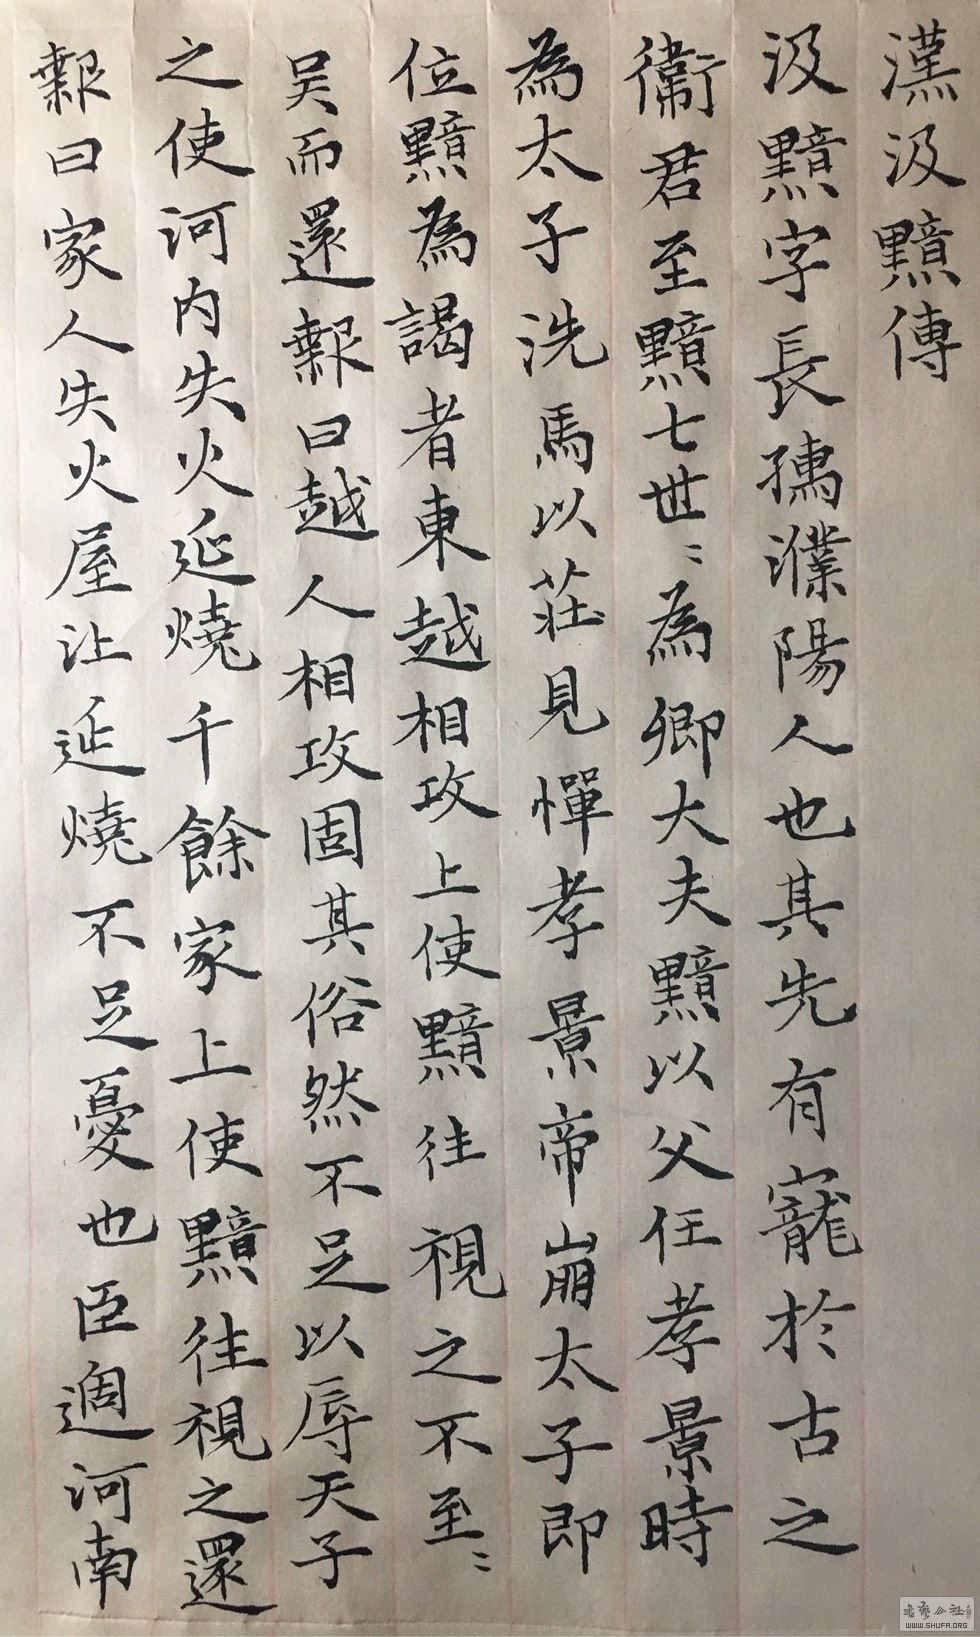 漢汲黯傳
汲黯字長孺濮陽人也其先有寵於古之
衛君至黯七世〻為卿大夫黯以父任孝景時
為太子洗馬以莊見憚孝景帝崩太子即
位黯為謁者東越相攻上使黯往視之不至〻
吳而還報曰越人相攻固其俗然不足以辱天子
之使河內失火延燒千餘家上使黯往視之還
報曰家人失火屋比延燒不足憂也臣過河南
書藝公社
WWW.SHUFA.ORG